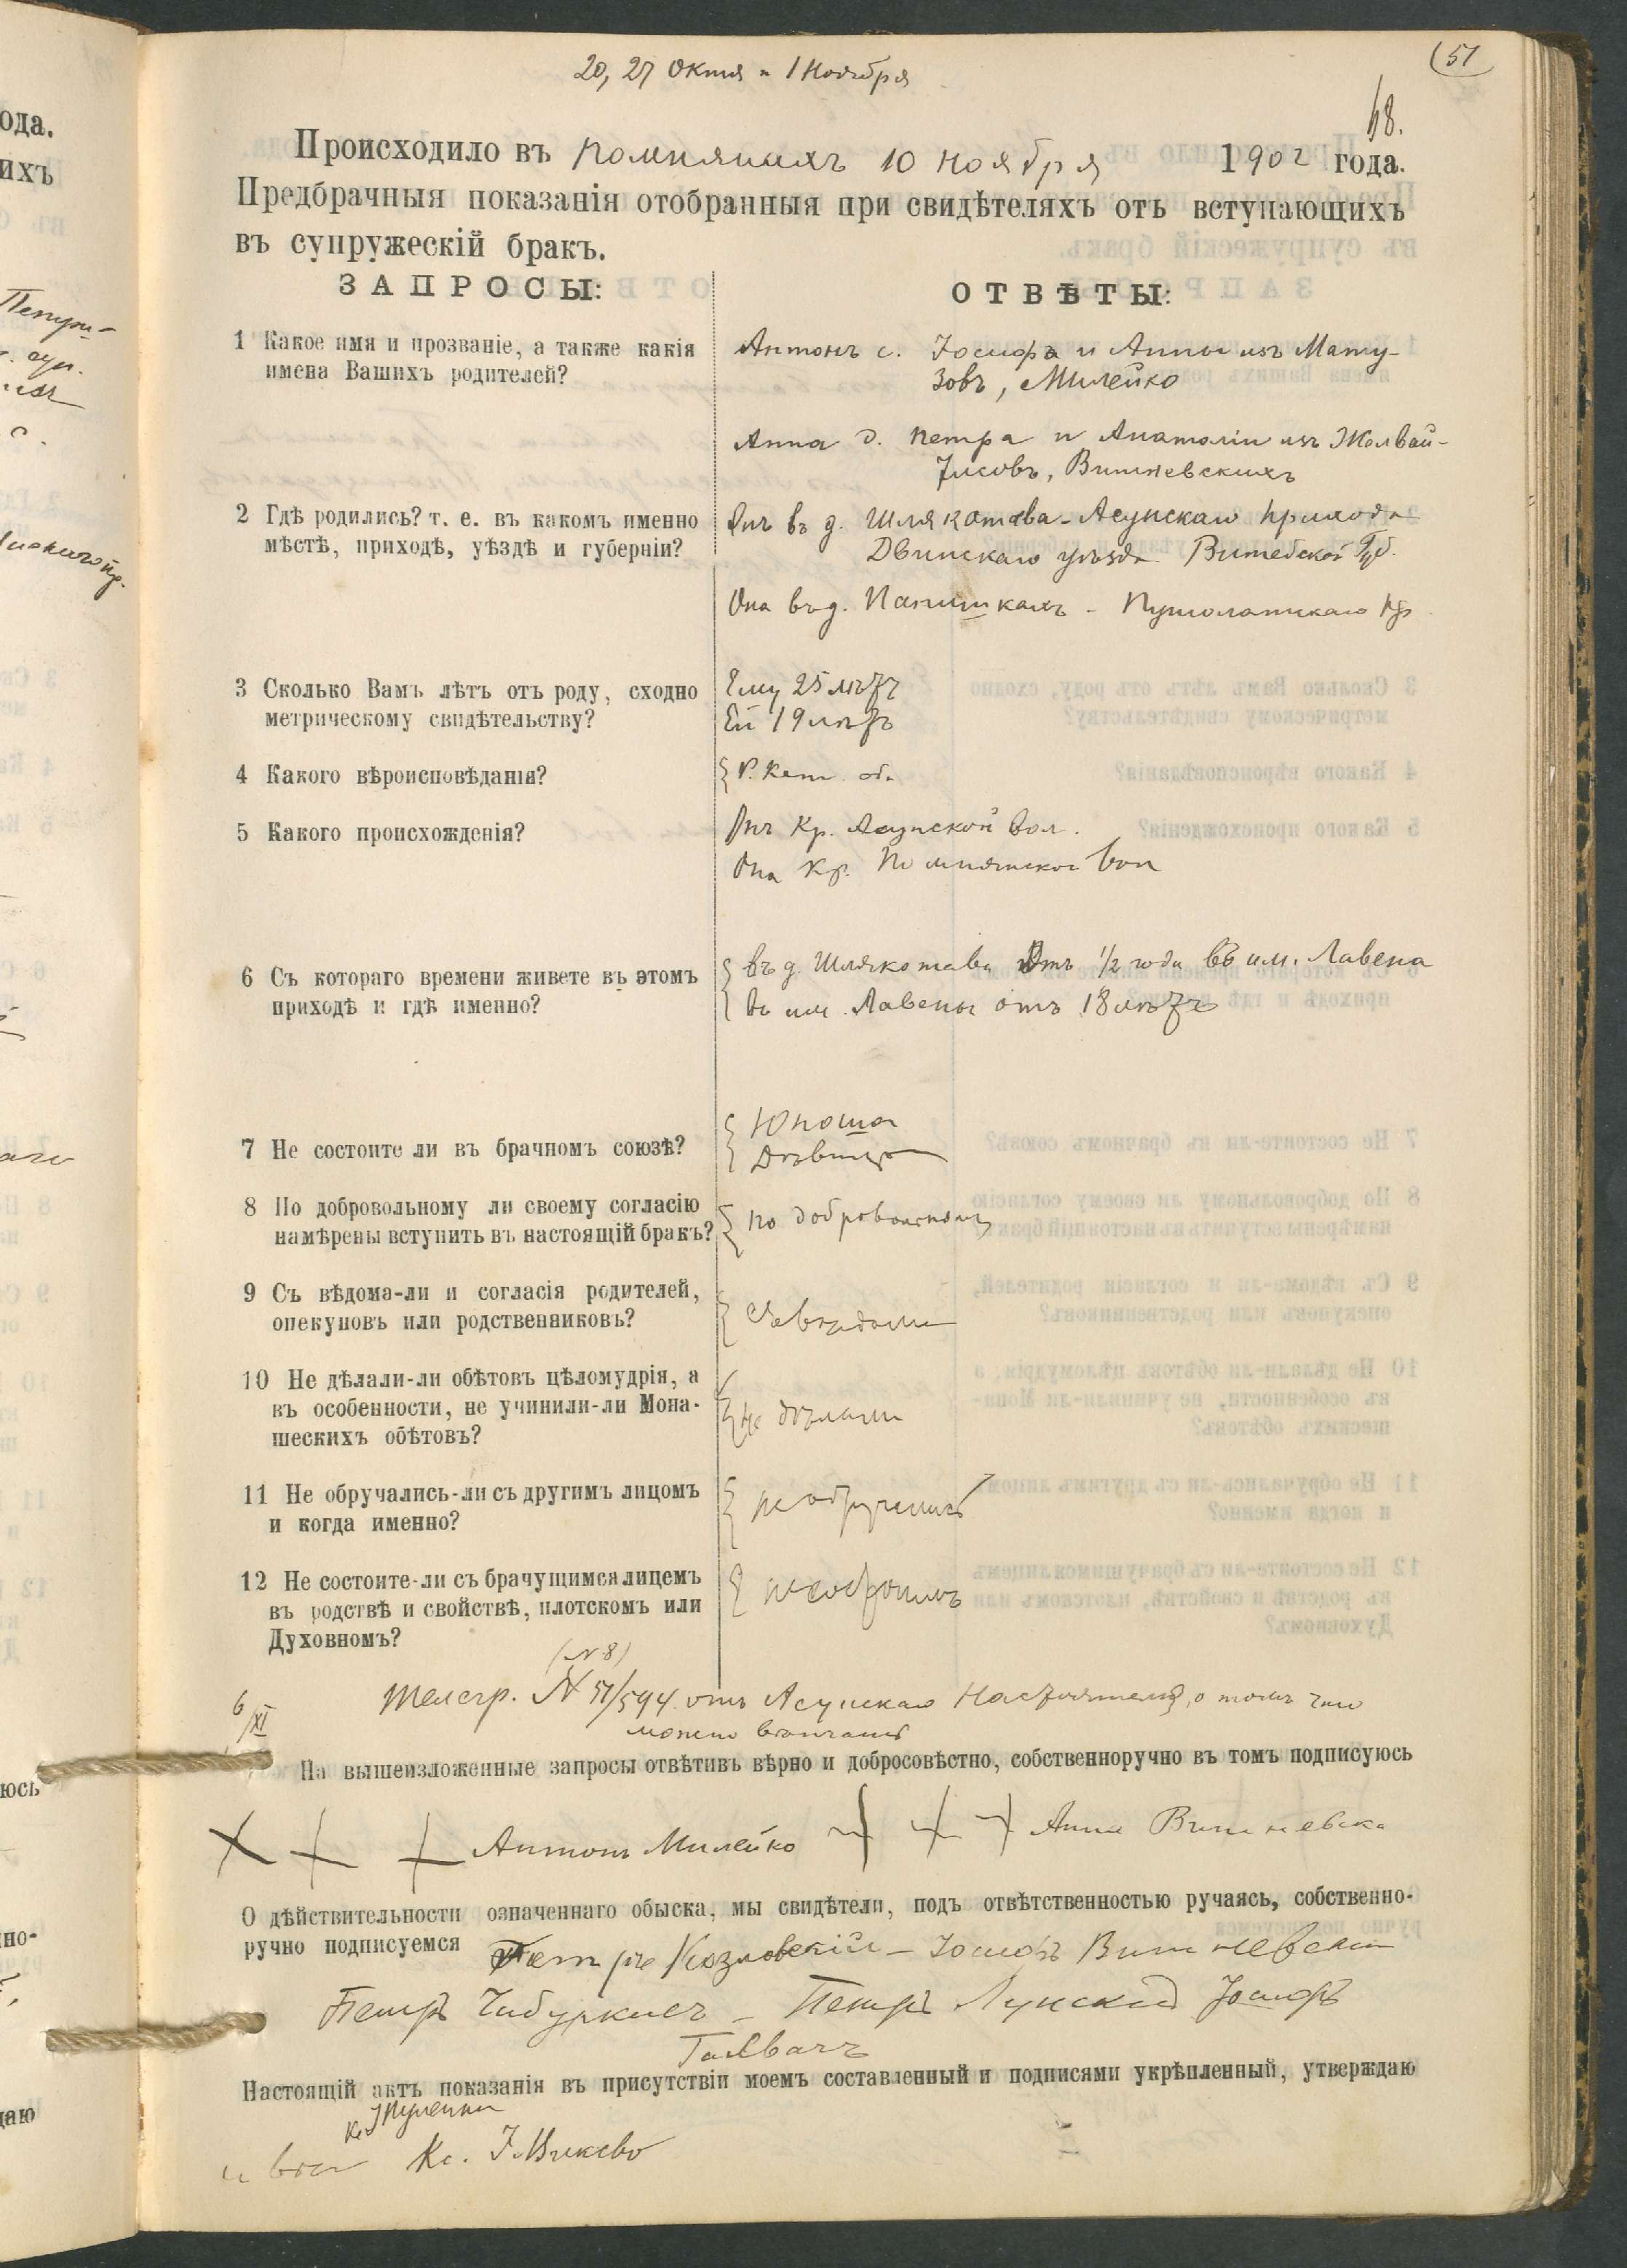 20, 27 Октя и 1 Ноября
51
68.
Происходило въ Помпянахъ 10 ноября 1902 года.
Предбрачныя показанія отобранныя при свидѣтеляхъ отъ вступающихъ
въ супружескій бракъ.
ЗАПРОСЫ:
ОТВѢТЫ:
1 Какое имя и прозваніе, а также какія
имена Вашихъ родителей?
Антонъ с. Іосифа и Анны изъ Мату-
зовъ, Милейко
Анна д. Петра и Анатоліи изъ Жолвай-
лисовъ, Вишневскихъ
2 Гдѣ родились? т. е. въ какомъ именно
мѣстѣ, приходѣ, уѣздѣ и губерніи?
Онъ въ д. Шлякотова - Асунскаго прихода
Двинскаго уѣзда Витебской Губ.
Она въ д. - Пушолатскаго пр
3 Сколько Вамъ лѣтъ отъ роду, сходно
метрическому свидѣтельству?
Ему 25 лѣтъ
Ей 19 лѣтъ
4 Какого вѣроисповѣданія?
Р. Кат. оба
5 Какого происхожденія?
Онъ Кр. Асунской вол.
Она Кр. Помпянской вол
6 Съ котораго времени живете въ этомъ
приходѣ и гдѣ именно?
въ д. Шлякотава Отъ 1/2 года въ им. Лавена
въ им. Лавены отъ 18 лѣтъ
7 Не состоите ли въ брачномъ союзѣ?
Юноша
Дѣвица
8 По добровольному ли своему согласію
намѣрены вступить въ настоящій бракъ?
по добровольному
9 Съ вѣдома-ли и согласія родителей,
опекуновъ или родственниковъ?
Съ вѣдома
10 Не дѣлали-ли обѣтовъ цѣломудрія, а
въ особенности, не учинили-ли Мона-
шескихъ обѣтовъ?
не дѣлали
11 Не обручались-ли съ другимъ лицомъ
и когда именно?
не обручались
12 Не состоите-ли съ брачущимся лицемъ
въ родствѣ и свойствѣ, плотскомъ или
Духовномъ?
не состоимъ
(N 8)
6/XI Телегр. N 51/594 отъ Асунскаго Настоятеля, о томъ что
можно вѣнчать
На вышеизложенные запросы отвѣтивъ вѣрно и добросовѣстно, собственноручно въ томъ подписуюсь
Антонъ Милейко Анна Вишневска
О дѣйствительности означеннаго обыска, мы свидѣтели, подъ отвѣтственностью ручаясь, собственно-
ручно подписуемся Петръ Козловскій - Іосифъ Вишневскій
Петръ Чибуркисъ - Петръ Лунскій Іосифъ
Настоящій актъ показанія въ присутствіи моемъ составленный и подписями укрѣпленный, утверждаю
Кс.